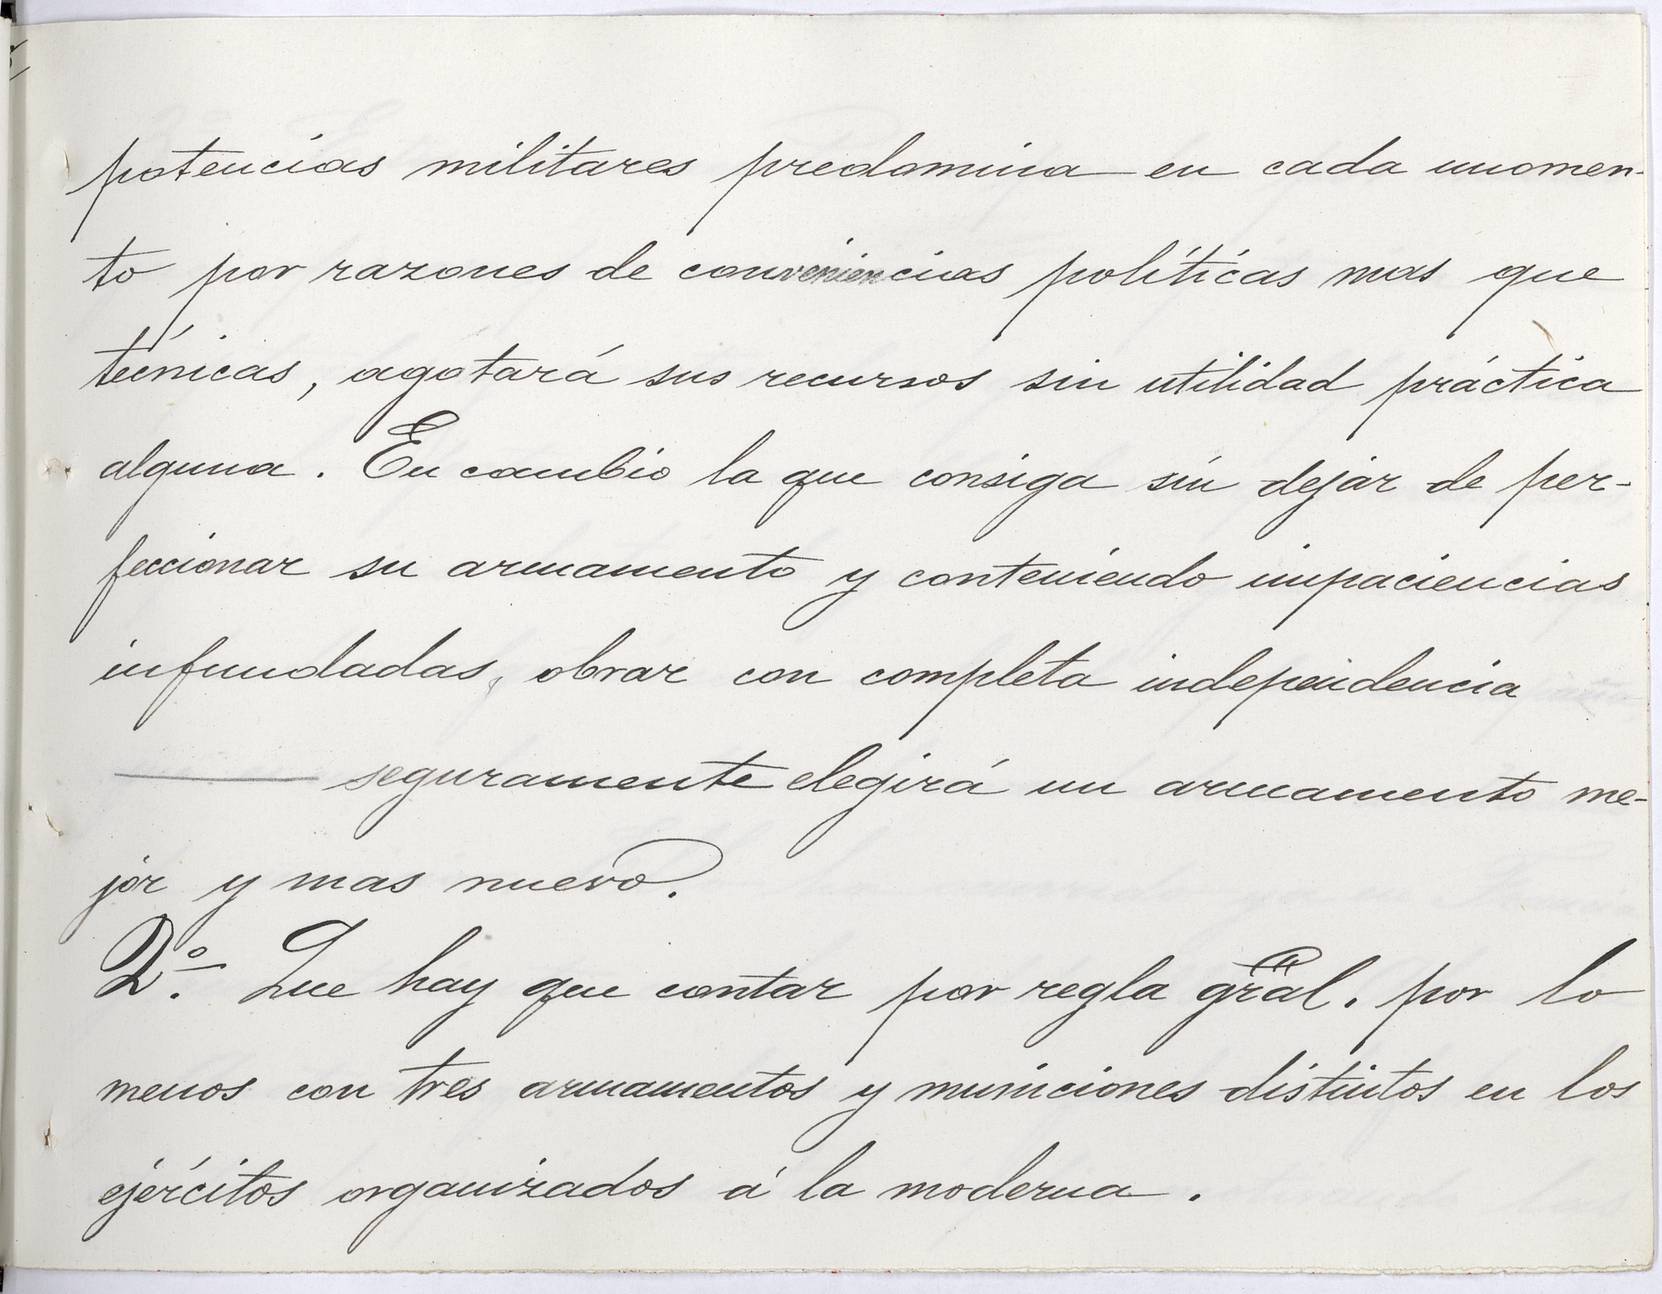 potencias militares predomina en cada momen-
to por razones de conveniencias políticas mas que
técnicas, agotará sus recursos sin utilidad práctica
alguna. En cambio la que consiga sin dejar de per-
feccionar su armamento y conteniendo impaciencias
infundadas, obrar con completa independencia
seguramente elegirá un armamento me-
jor y mas nuevo.
2º. Que hay que contar por regla gral. por lo
menos con tres armamentos y municiones distintos en los
ejércitos organizados á la moderna.